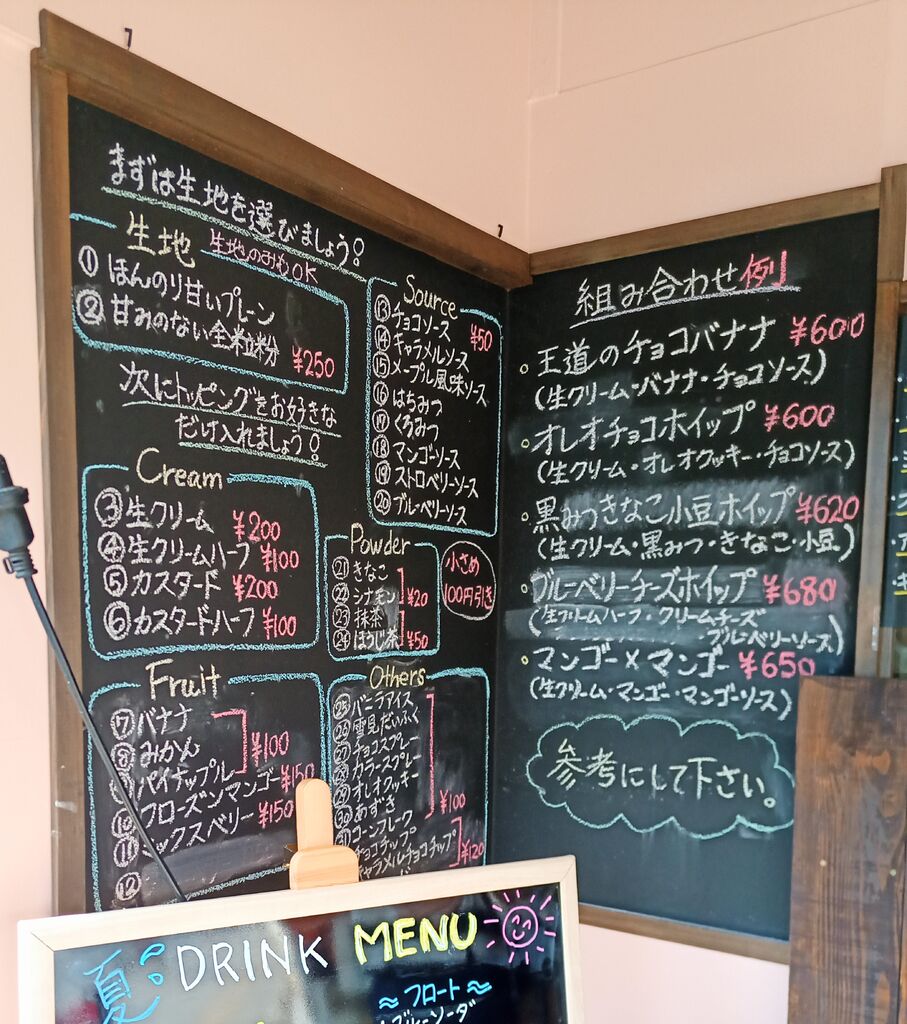 まずは生地を選びましょう!
生地 生地のみもOK
① ほんのり甘いプレーン
② 甘みのない全粒粉 ¥250
次にトッピングをお好きな
だけ入れましょう!
Cream
③生クリーム ¥200
④生クリームハーフ ¥100
⑤カスタード ¥200
⑥カスタードハーフ ¥100
Fruit
⑦バナナ
⑧みかん ¥100
パイナップル
フローズンマンゴー ¥150
⑪ミックスベリー ¥150
⑫
Source
⑬チョコソース ¥50
⑭キャラメルソース
⑮メープル風味ソース
⑯はちみつ
⑰くろみつ
⑱マンゴーソース
⑲ストロベリーソース
⑳ブルーベリーソース
Powder
㉑きなこ
㉒シナモン ¥20
㉓抹茶
㉔ほうじ茶 ¥50
小さめ
100円引き
Others
㉕バニラアイス
㉖雪見だいふく
㉗チョコスプレー
㉘カラースプレー
㉙オレオクッキー
㉚あずき ¥100
㉛コーンフレーク
チョコチップ
キャラメルチョコチップ ¥120
組み合わせ例
○王道のチョコバナナ ¥600
(生クリーム・バナナ・チョコソース)
○オレオチョコホイップ ¥600
(生クリーム・オレオクッキー・チョコソース)
○黒みつきなこ小豆ホイップ ¥620
(生クリーム・黒みつ・きなこ・小豆)
○ブルーベリーチーズホイップ ¥680
(生クリームハーフ・クリームチーズ
ブルーベリーソース)
○マンゴー×マンゴー ¥650
(生クリーム・マンゴー・マンゴーソース)
参考にして下さい。
夏 DRINK MENU
≈フロート≈
ブルーソーダ